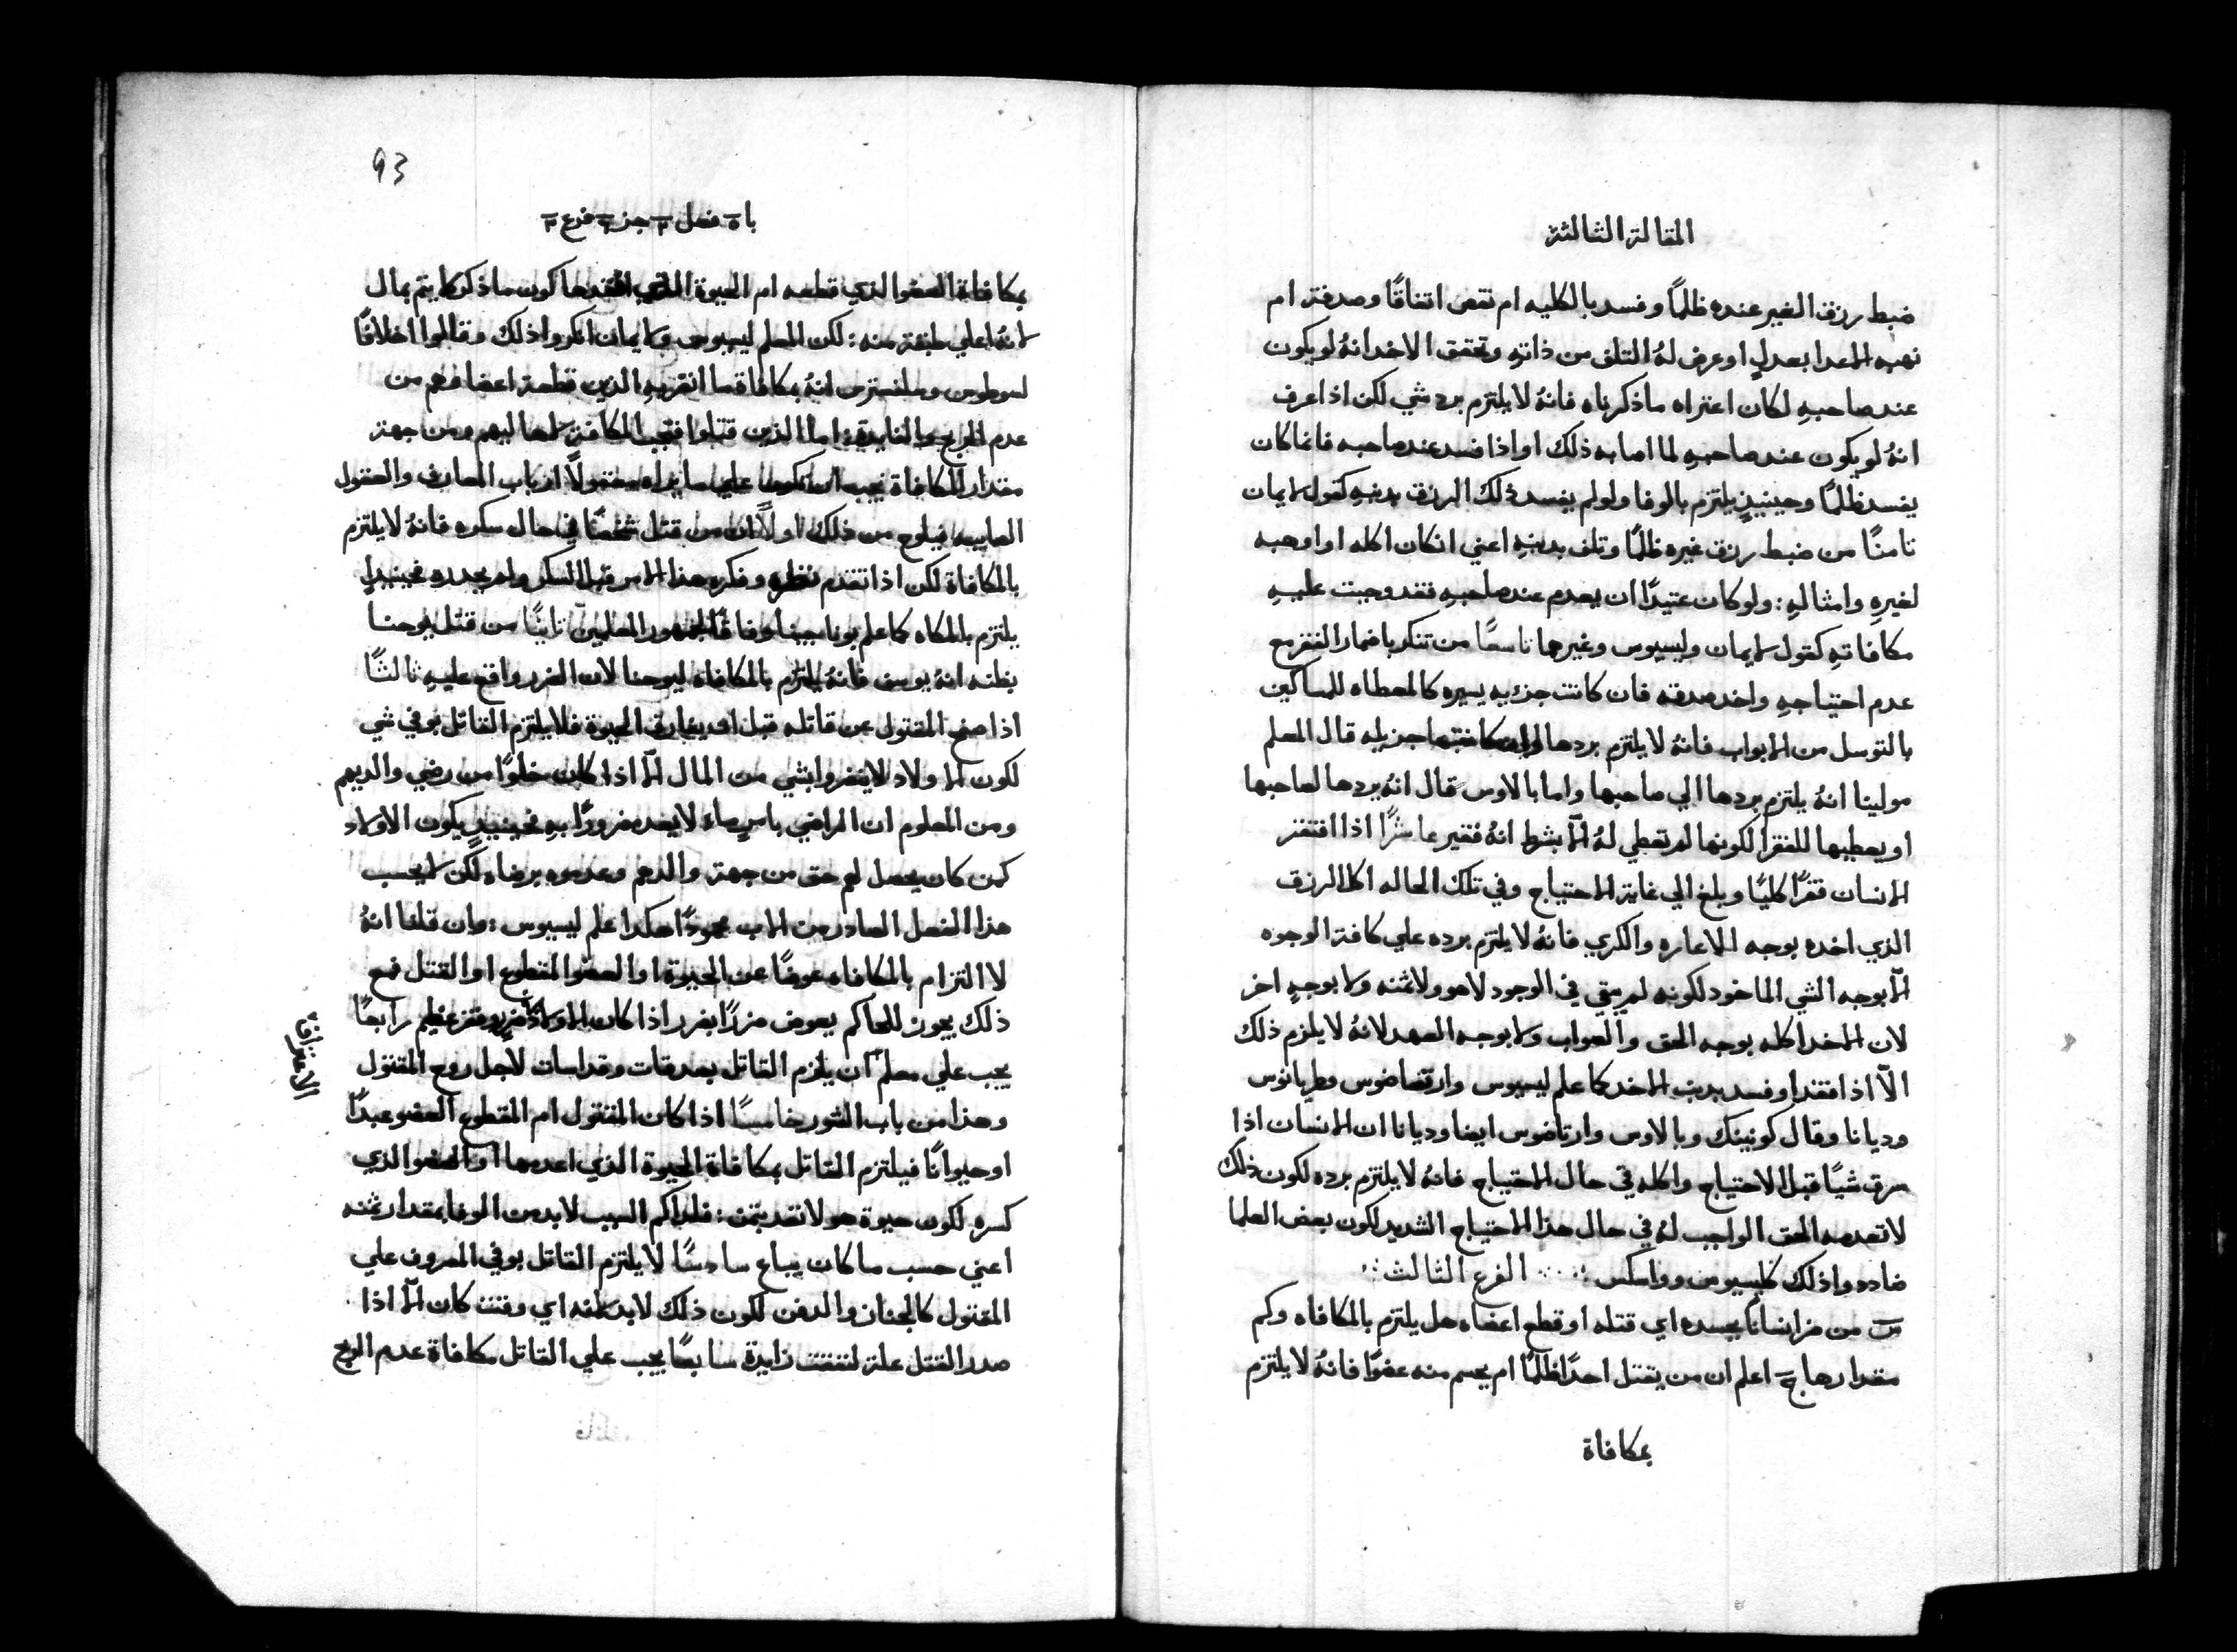 المقالة الثالثة
ضبط رزق الغير عنده ظلمًا وفسد بالكليه ام نقص اتفاقًا وصدفة ام
نهبه الاعدا بعدلٍ او عرض لهُ التلف من ذاتهِ وتحقق الاخد انهُ لو يكون
عند صاحبهِ لكان اعتراه ماذكرناه فانهُ لا يلتزم برد شي لكن اذا عرف
انهُ لو يكون عند صاحبهِ لما اصابه ذلك او اذا فسد عند صاحبه فانما كان
يفسد ظلمًا وحينيذٍ يلتزم بالوفا ولو لم يفسد ذلك الرزق بيدهِ كقول لايمان
ثامنًا من ضبط رزق غيره ظلمًا وتلف بيدهِ اعني انكان اكله او اوهبه
لغيرهِ وامثالهِ : ولو كان عتيدًا ان يعدم عند صاحبهِ فقد وجبت عليهِ
مكافاتهِ كقول لايمان وليسيوس وغيرهما تاسعًا من تنكر باضمار الفقر مع
عدم احتياجهِ واخد صدقه فان كانت جزييه يسيره كالمعطاه للمساكين
بالتوسل من الابواب فانهُ لا يلتزم بردها وان كانت جزيله قال المعلم
مولينا انهُ يلتزم بردها الي صاحبها واما بالاوس قال انهُ يردها لصاحبها
او يعطيها للفقرا لكونها لم تعطي لهُ الّا بشرط انهُ فقير عاشرًا اذا افتقر
الانسان فقرًا كليًا وبلغ الي غاية الاحتياج وفي تلك الحاله اكل الرزق
الذي اخده بوجه الاعاره والكري فانهُ لا يلتزم برده علي كافة الوجوه
الّا بوجه الشي الماخود لكونه لم يبقي في الوجود لا هو ولا ثمنه ولا بوجهٍ اخر
لان الاخد اكله بوجه الحق والصواب ولا بوجه العهد لانهُ لا يلزم ذلك
الّا اذا فقد او فسد بدين الاخد كما علم ليسيوس وارتضاضوس وطربانوس
وديانا وقال كونينك وبالاوس وارتاضوس ايضا وديانا ان الانسان اذا
سرق شيًا قبل الاحتياج واكله في حال الاحتياج فانهُ لا يلتزم برده لكون ذلك
لا تعدمه الحق الواجب لهُ في حال هذا الاحتياج الشديد لكون بعض العلما
ضاددوا ذلك كليسيوس وواسكس : الفرع الثالث
س من ضر انسانًا بجسده اي قتله او قطع اعضاه هل يلتزم بالمكافاه وكم
مقدارها ج اعلم ان من يقتل احدًا ظلمًا ام يحسم منه عضوًا فانهُ لا يلتزم
بمكافاة
93
با ٥ فصل جز فرع ٣
بمكافاة العضو الذي قطعه ام الحيوة الذي افقدها كون ماذكر لا يتم بمال
لانهُ اعلي طبقة منه : لكن المعلم ليسيوس ولايمان انكروا ذلك وقالوا اخلافًا
لسوطوس وملنسترس انهُ بمكافاة ما انقربهِ الذين قطعة اعضاوهم من
عدم الربح والفايدة : اما الذين قتلوا فتجب المكافاة لاهاليهم ومن جهة
مقدار المكافاة يجب علي ما يراه مقبولًا ارباب المعارف والعقول
الصايبه فيلوح من ذلك اولًا ان من قتل شخصًا في حال سكره فانهُ لا يلتزم
بالمكافاة لكن اذا تقدم نظره وفكره هذا الامر قبل السكر ولم يحدده فحينيذٍ
يلتزم بالمكاه كما علم بوناجينا وفاقًا لجمهور المعلمين ثانيًا من قتل يوحنا
بظنه انهُ يوسف فانهُ يلتزم بالمكافاة ليوحنا لان الضرر واقع عليهِ ثالثًا
اذا صفح المقتول عن قاتله قبل ان يفارق الحيوة فلا يلتزم القاتل بوفي شي
لكون الاولاد لا يضروا بشي من المال الّا اذا كان خلوًا من رضي والديهم
ومن المعلوم ان الراضي باسٍ ماء لا يعد مضرورًا بهِ فحينيذٍ يكون الاولاد
كمن كان يحصل لهم حق من جهة والدهم وعدموه برضاه لكن لا يحسب
هذا الفصل الصادر من الاب محمودًا هكدا علم ليسيوس : وان قلنا انهُ
لا التزام بالمكافاه عوضًا عن الحيوة او العضو المقطوع او القتل فمع
ذلك يجوز للحاكم يعوض ضررًا بضرر اذا كان عظيم رابعًا
يجب علي معلم الاعتراف ان يلزم القاتل بصدقات وقداسات لاجل روح المقتول
وهذا من باب الشور خامسًا اذا كان المقتول ام المقطوع العضو عبدًا
او حيوانًا فيلتزم القاتل بمكافاة الحيوة الذي اعدمها او العضو الذي
كسره لكون حيوة هولا تعد بثمن : فلداكم السبب لابد من الوفا بمقدار ثمنه
اعني حسب ما كان يباع سادسًا لا يلتزم القاتل بوفي المصروف علي
المقتول كالجناز والدفن لكون ذلك لابد منه اي وقت كان الّا اذا
صدر القتل علة لنفقت زايدة سابعًا يجب علي القاتل مكافاة عدم الربح